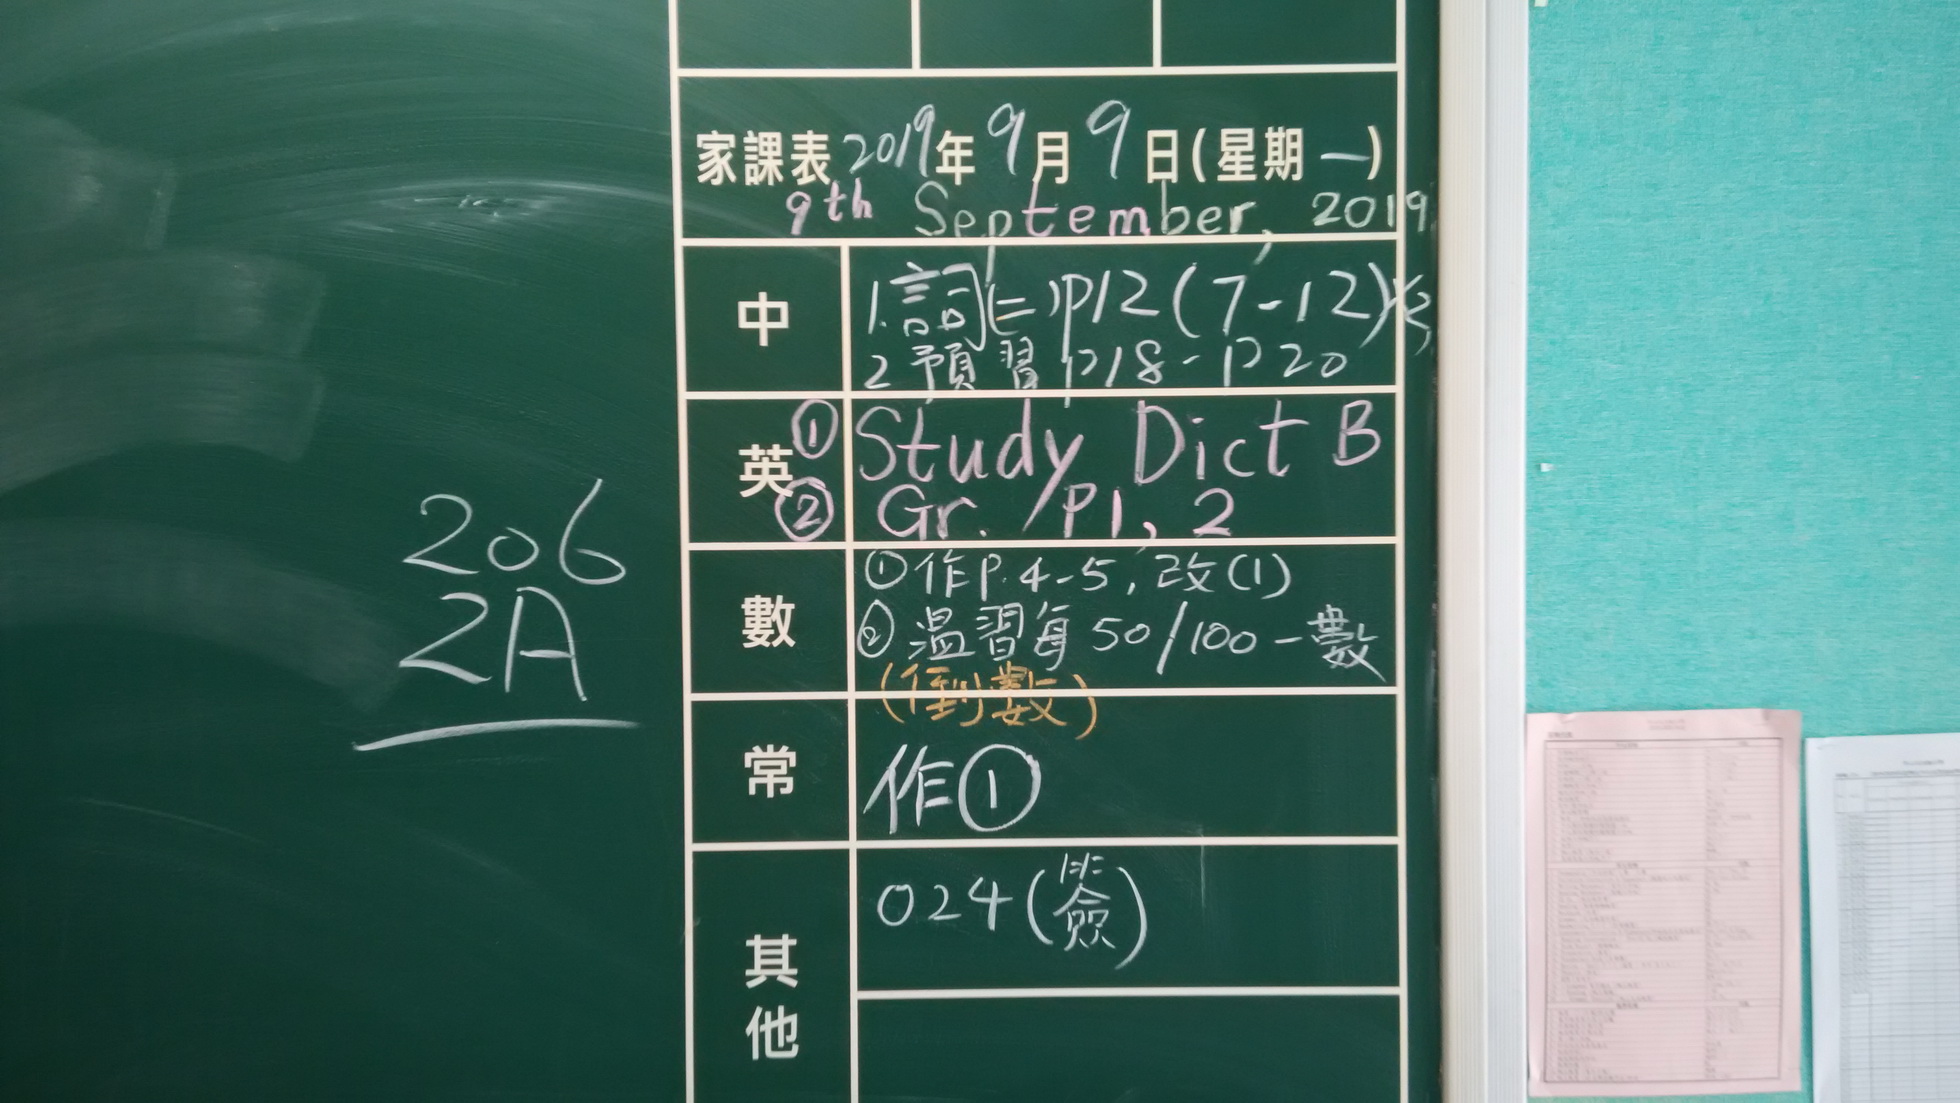 家課表2019年9月9日(星期一)
9th September, 2019
中
1.詞(二)p12(7-12)
2 預習 p18-p20
英
① Study Dict B
② Gr. /P1, 2
數
①作p.4-5,改(1)
②溫習每50/100一數
(倒數)
常
作①
其他
024(簽)
206
2A